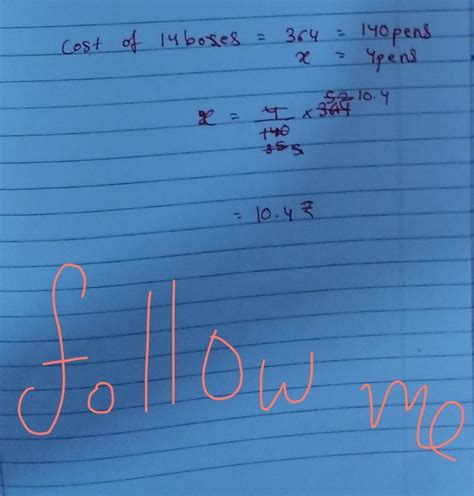 Cost of 14 boses = 364 = 140 pens
x = 4 pens
x = 4/140 × 364 52 10.4
35 5
= 10.4 ₹
follow me